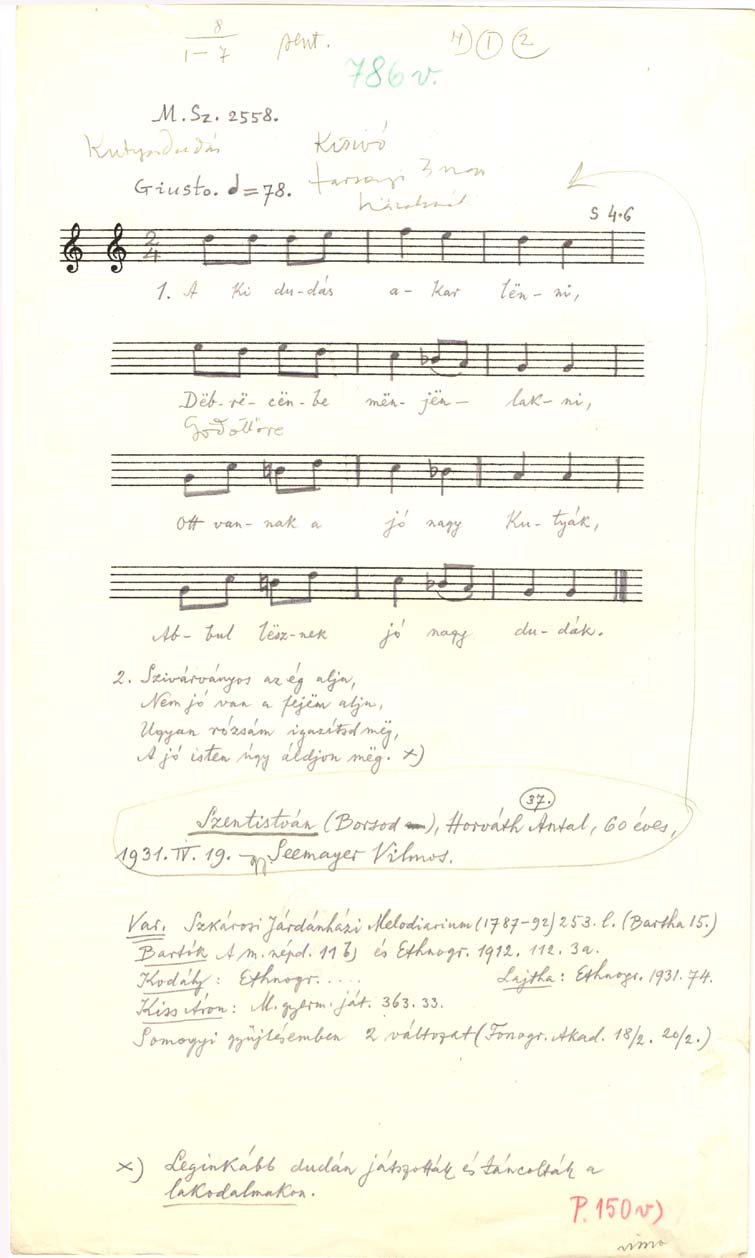 8
1–7 szent.
4) 1 2
786v.
M. Sz. 2558.
Kutyaduda
Kisivó
Giusto. d=78.
S 4·6
2
4
1. A ki du-dás a- kar lën- ni,
Dëb-rë- cën- be mën- jën – lak- ni,
Gödöllőre
Ott van- nak a jó nagy Ku- tyák,
Ab- bul lësz-nek jó nagy du- dák.
2. Szivárványos az ég alja,
Nem jó van a fejëm alja,
Ugyan rózsám igazítsd mëg,
A jó isten úgy áldjon mëg. x)
37.
Szentistván (Borsod), Horváth Antal, 60 éves,
1931. IV. 19. Seemayer Vilmos.
Var. Szkárosi Járdánházi Melodiarium (1787-92) 253. l. (Bartha 15.)
Bartók A m. népd. 11 b) és Ethnogr. 1912. 112. 3a.
Kodály: Ethnogr. .... Lajtha: Ethnogr. 1931. 74.
Kiss Áron: M. gyerm. ját. 363. 33.
Somogyi gyűjtésemben 2 változat (Fonogr. Akad. 18/2. 20/2.)
x) Leginkább dudán játszották és táncolták a
lakodalmakon.
P. 150v)